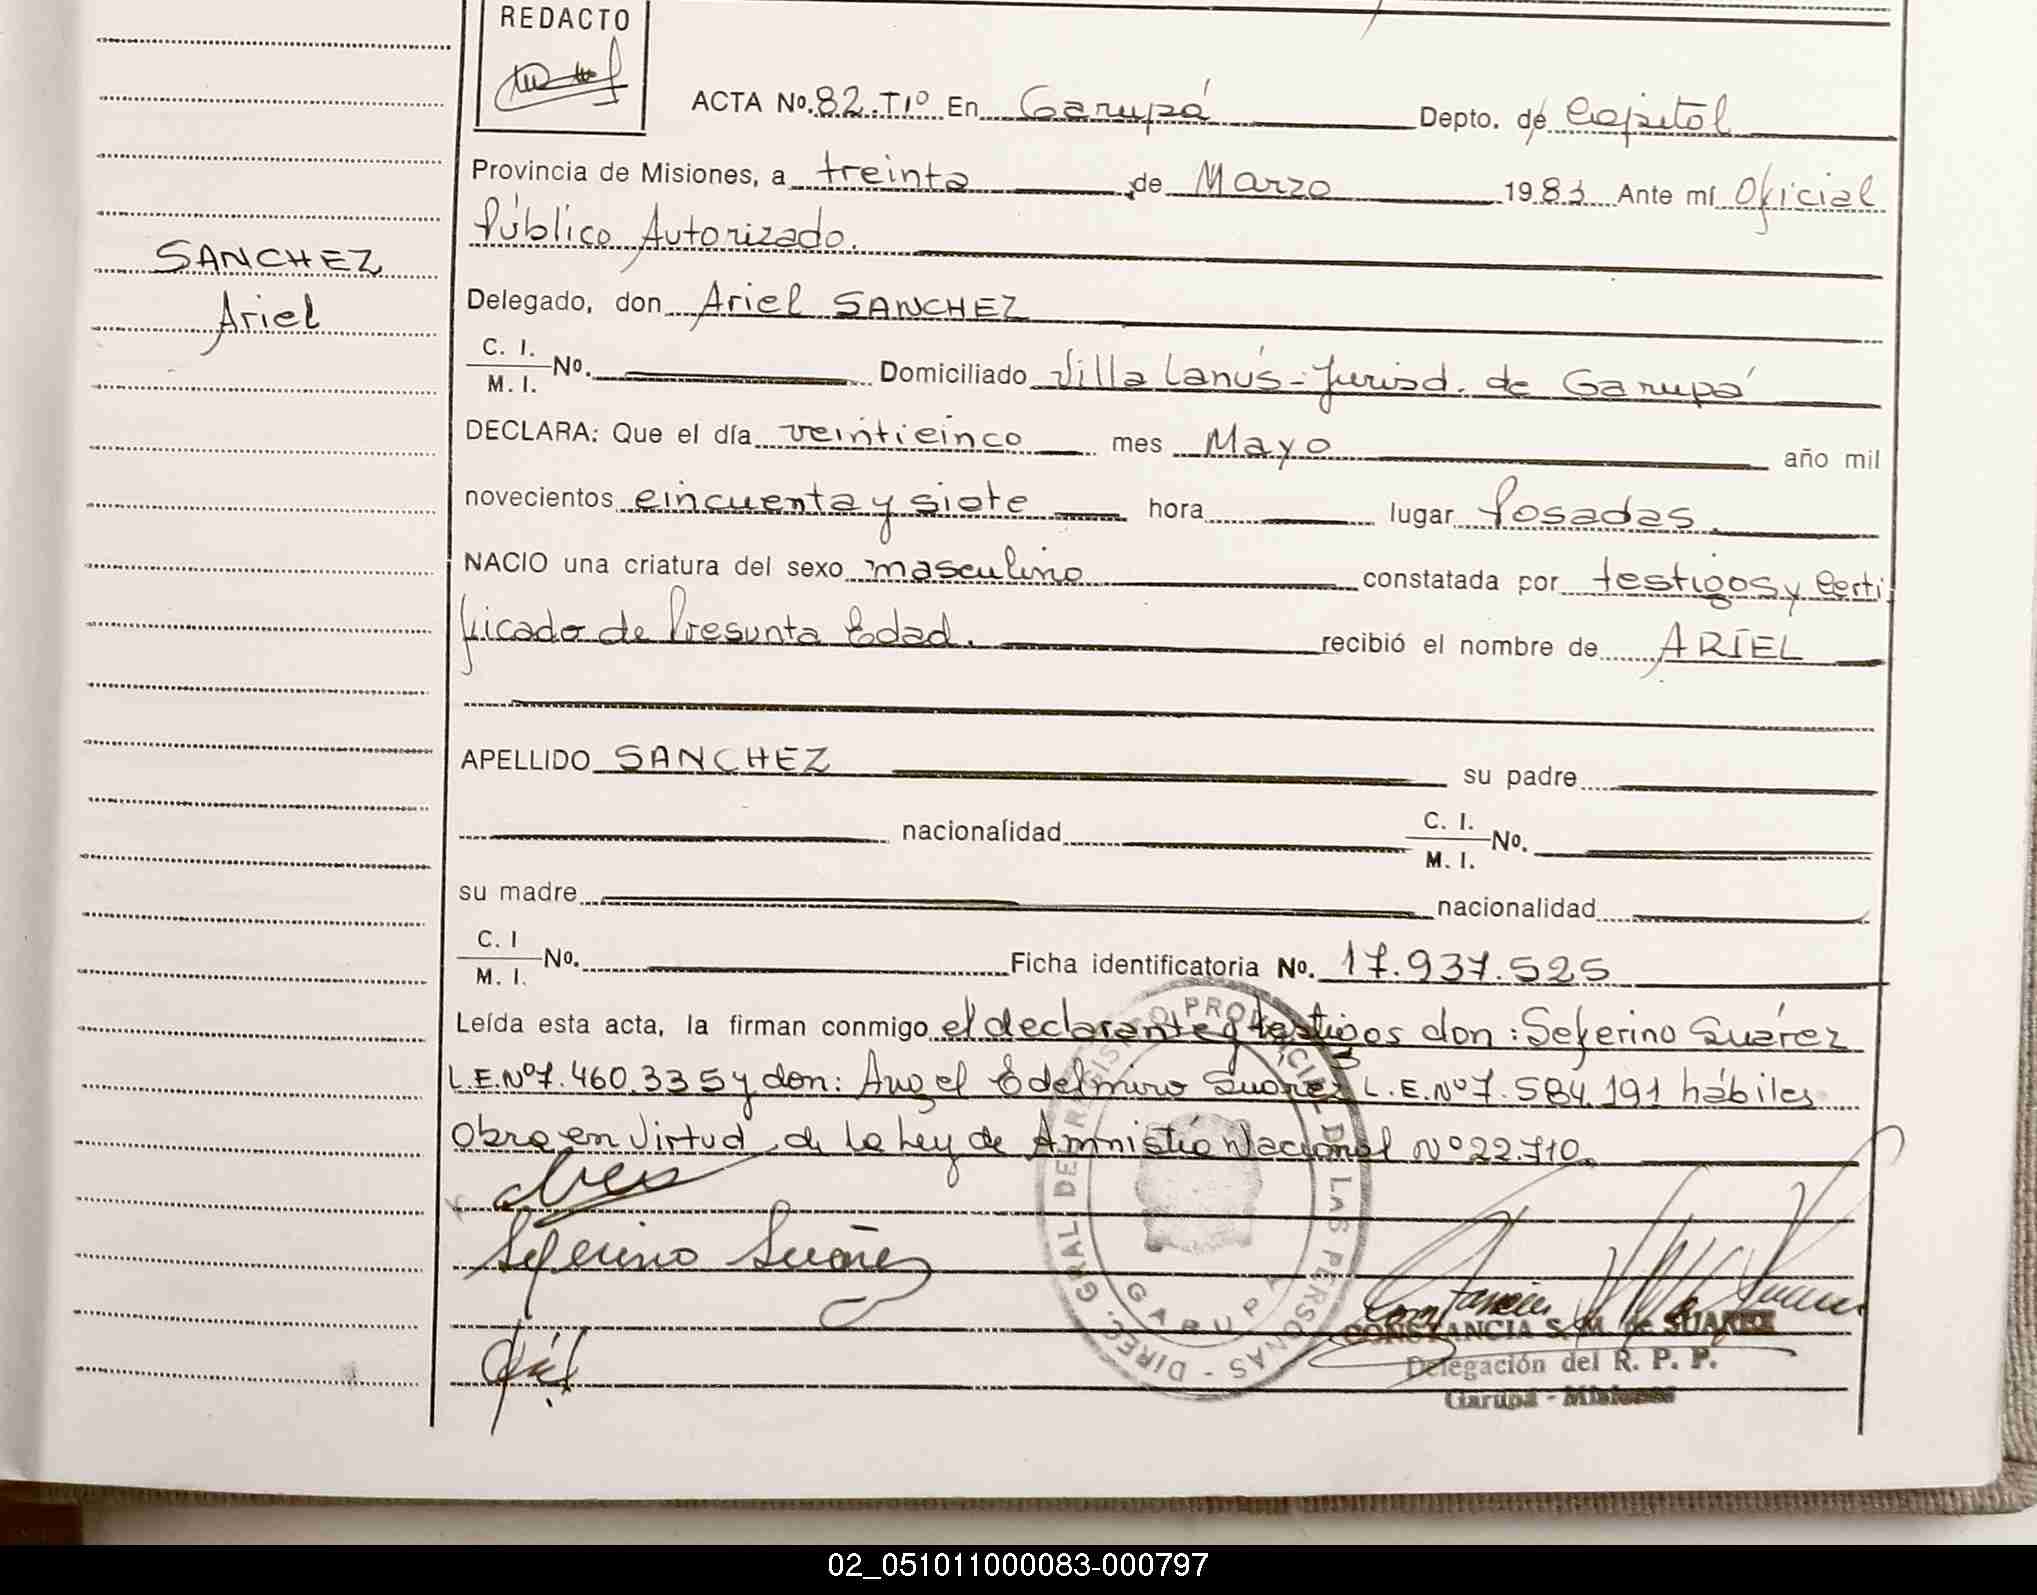 REDACTO
ACTA No. 82. Tº 1º En Garupá Depto. de Capital
Provincia de Misiones, a treinta de Marzo 1983 Ante mí Oficial
Público Autorizado.
SANCHEZ
Ariel
Delegado, don Ariel SANCHEZ
C. I.
M. I. No. Domiciliado Villa Lanús - Jurisd. de Garupá
DECLARA: Que el día veinticinco mes Mayo año mil
novecientos cincuenta y siete hora lugar Posadas.
NACIO una criatura del sexo masculino constatada por testigos y Certi
ficado de Presunta Edad. recibió el nombre de ARIEL
APELLIDO SANCHEZ su padre
nacionalidad C. I.
M. I. No.
su madre nacionalidad
C. I
M. I. No. Ficha identificatoria No. 17.937.525
Leída esta acta, la firman conmigo el declarante y testigos don: Seferino Suárez
L.E.Nº 7.460.335 y don: Angel Edelmiro Suárez L.E.Nº 7.584.191 hábiles
obra en Virtud de la Ley de Amnistía Nacional Nº 22.710.
Seferino Suárez
DIREC. GRAL DE REGISTRO PROVINCIAL DE LAS PERSONAS -
GARUPA
CONSTANCIA S. M. de SUAREZ
Delegación del R. P. P.
Garupá - Misiones
02_051011000083-000797